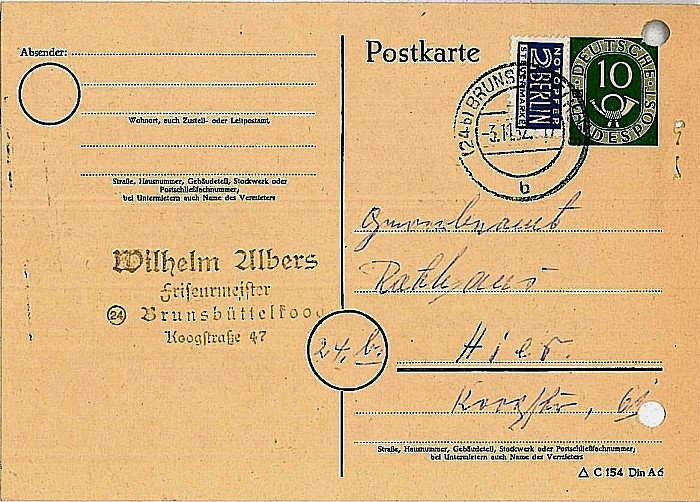 Absender:
Wohnort, auch Zustell- oder Leitpostamt
Straße, Hausnummer, Gebäudeteil, Stockwerk oder
Postschließfachnummer;
bei Untermietern auch Name des Vermieters
Wilhelm Albers
Friseurmeister
24 Brunsbüttelkoog
Koogstraße 47
Postkarte
NOTOPFER
2 BERLIN
STEUERMARKE
DEUTSCHE BUNDESPOST
10
(24b) BRUNSBÜTTELKOOG
-3.11.52.-17
b
Gewerbeamt
Rathaus
24. b.
Hier.
Koogstr. 61
Straße, Hausnummer, Gebäudeteil, Stockwerk oder Postschließfachnummer;
bei Untermietern auch Name des Vermieters
△ C 154 Din A 6